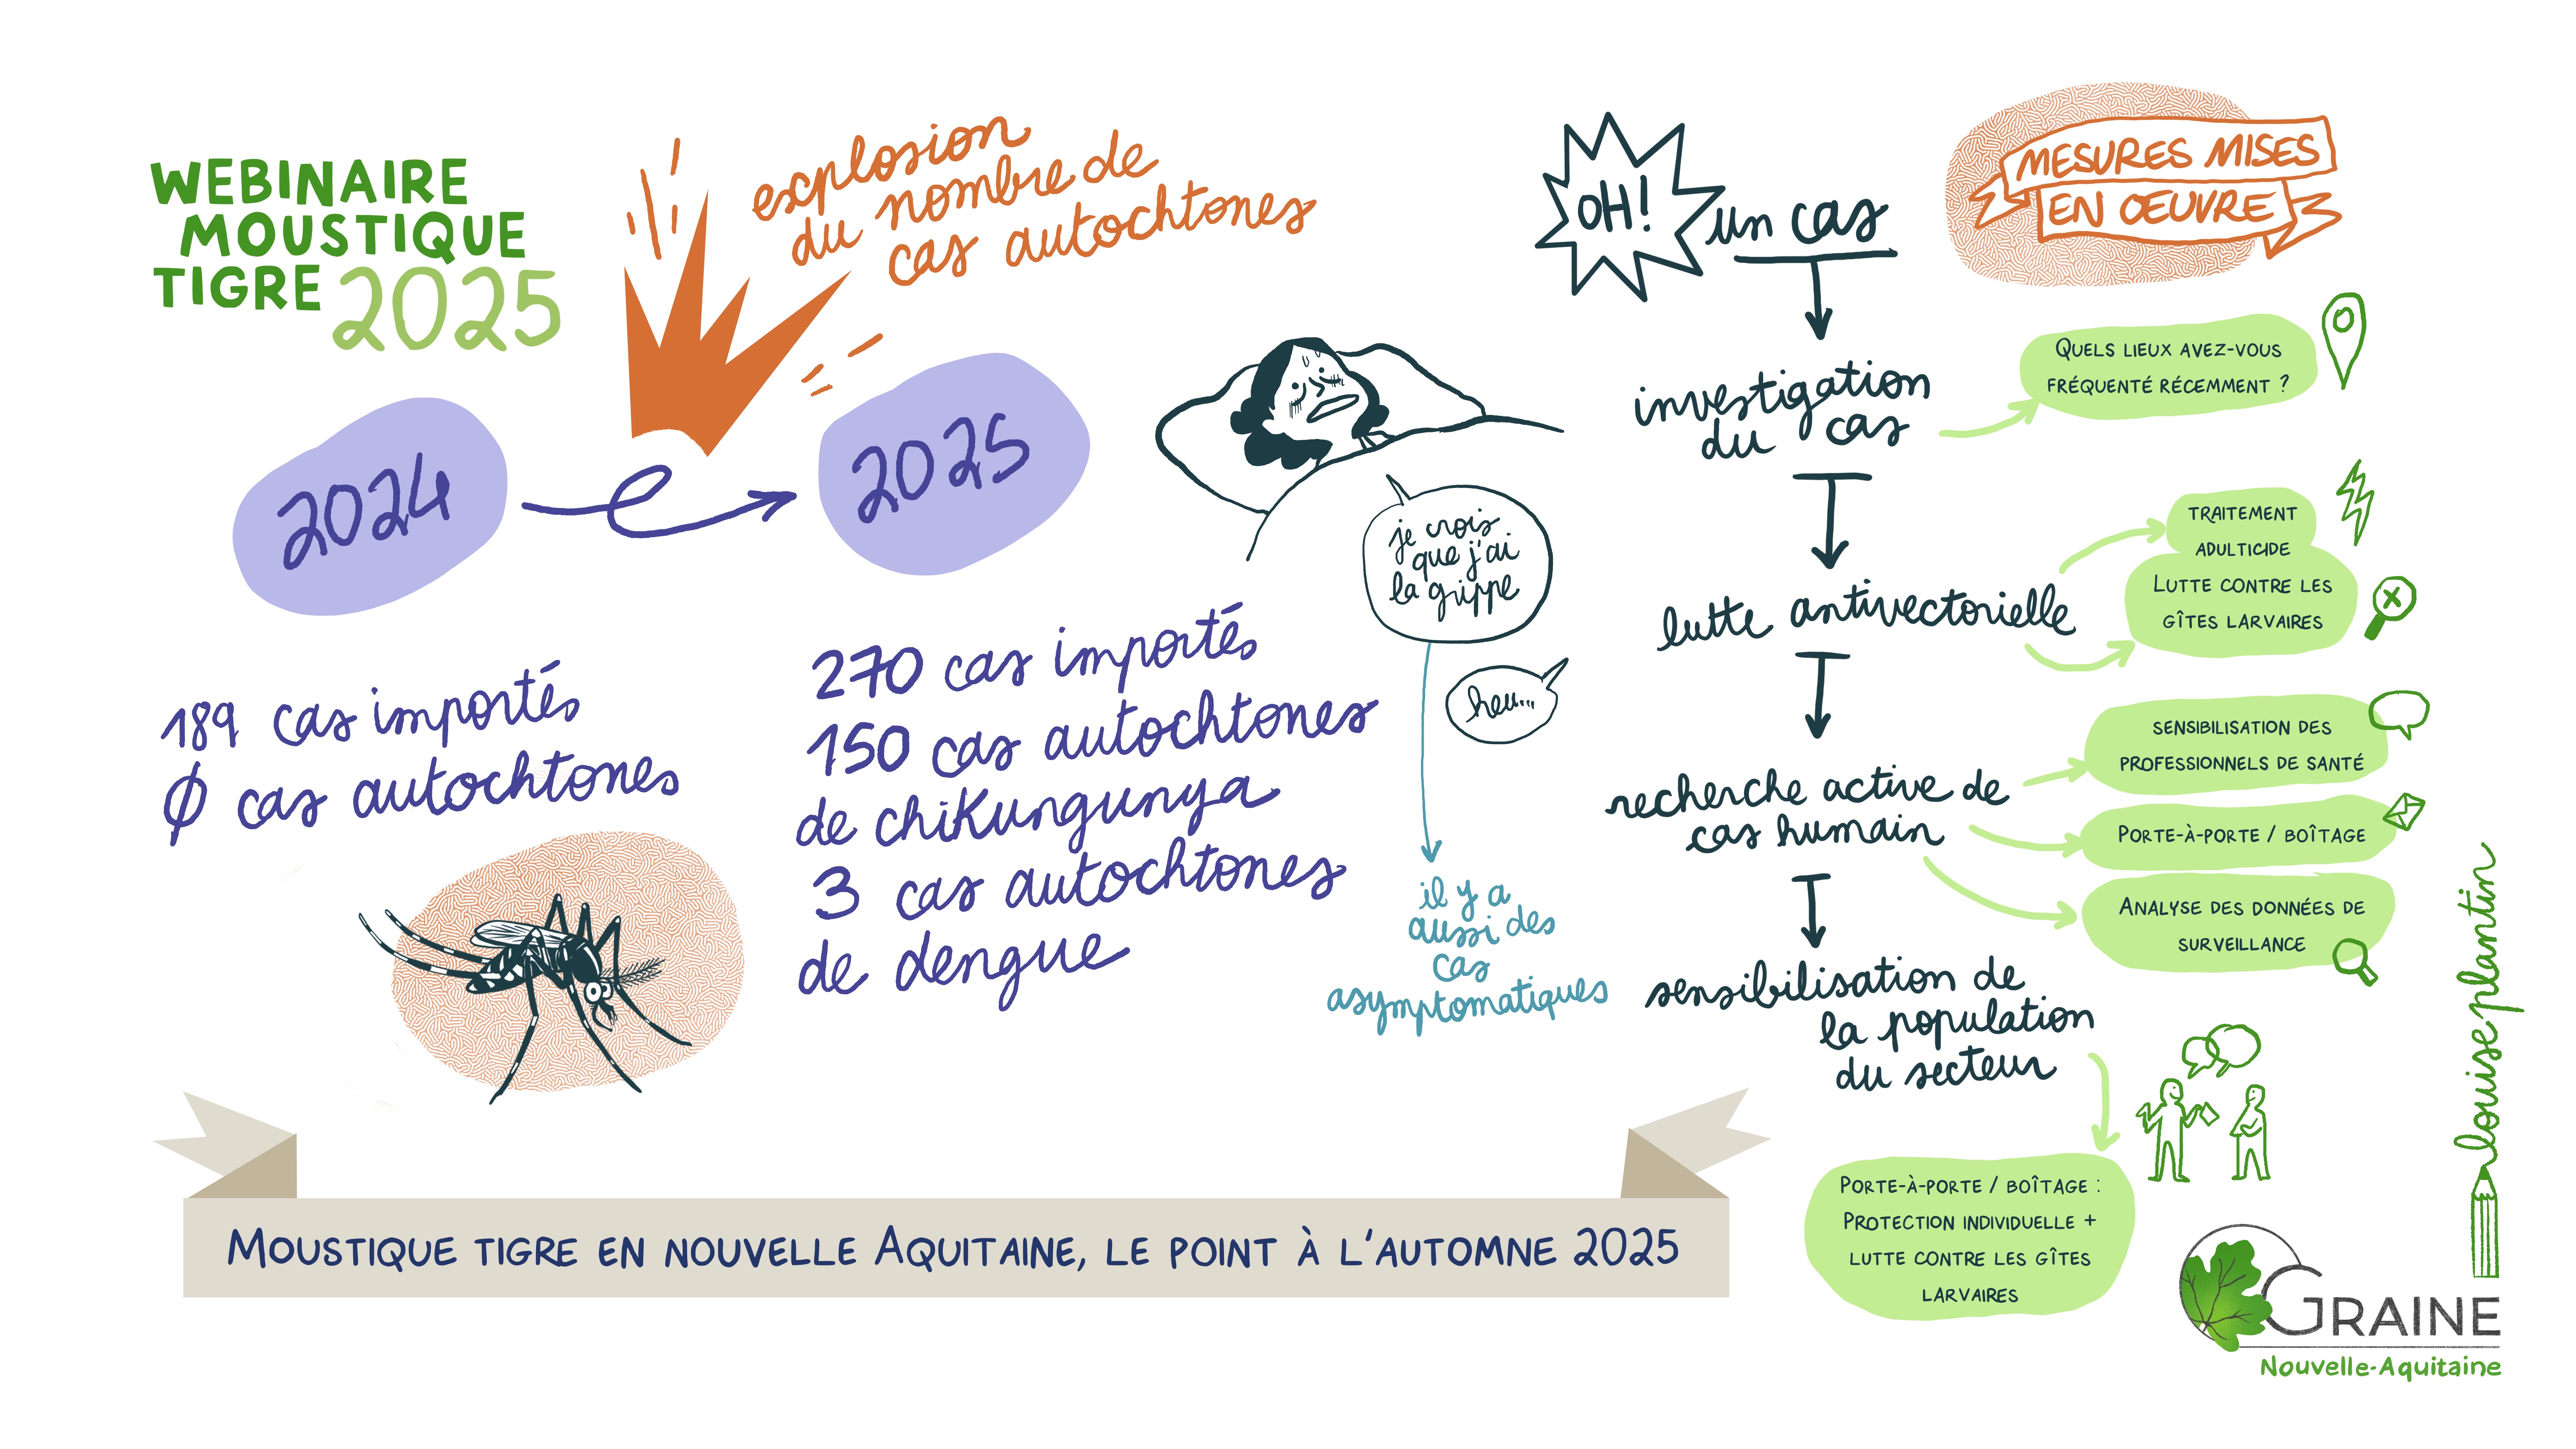 WEBINAIRE
MOUSTIQUE
TIGRE 2025
explosion
du nombre de
cas autochtones
2024
2025
189 cas importés
0 cas autochtones
270 cas importés
150 cas autochtones
de chikungunya
3 cas autochtones
de dengue
je crois
que j'ai
la grippe
heu...
il y a
aussi des
cas
asymptomatiques
MESURES MISES
EN ŒUVRE
OH!
un cas
investigation
du cas
QUELS LIEUX AVEZ-VOUS
FRÉQUENTÉ RÉCEMMENT ?
lutte antivectorielle
TRAITEMENT
ADULTICIDE
LUTTE CONTRE LES
GÎTES LARVAIRES
recherche active de
cas humain
SENSIBILISATION DES
PROFESSIONNELS DE SANTÉ
PORTE-À-PORTE / BOÎTAGE
ANALYSE DES DONNÉES DE
SURVEILLANCE
sensibilisation de
la population
du secteur
PORTE-À-PORTE / BOÎTAGE :
PROTECTION INDIVIDUELLE +
LUTTE CONTRE LES GÎTES
LARVAIRES
MOUSTIQUE TIGRE EN NOUVELLE AQUITAINE, LE POINT À L'AUTOMNE 2025
louise plantin
GRAINE
Nouvelle-Aquitaine